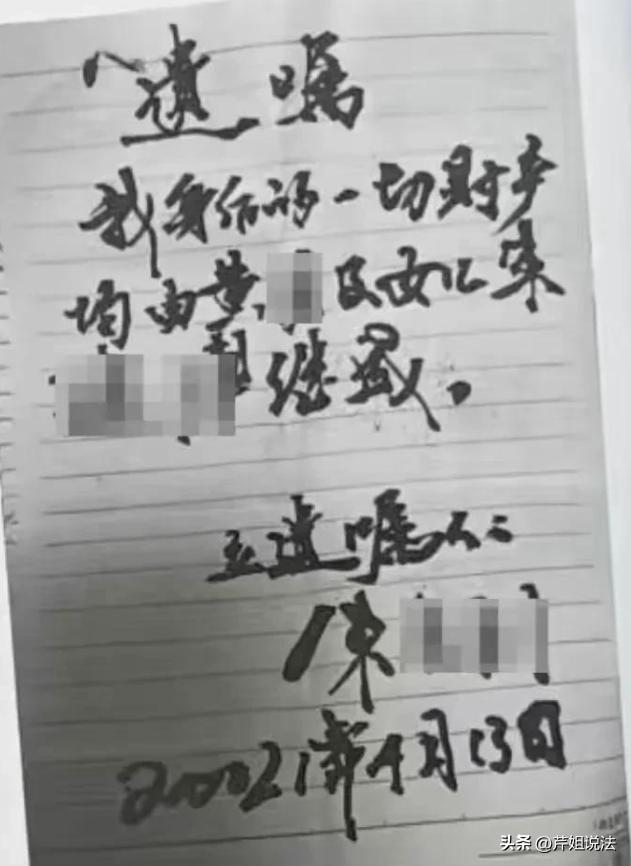 遗嘱
我身后的一切财产
均由黄及女儿
继承。
立遗嘱人:
陈
20021年4月13日
头条 @芹姐说法